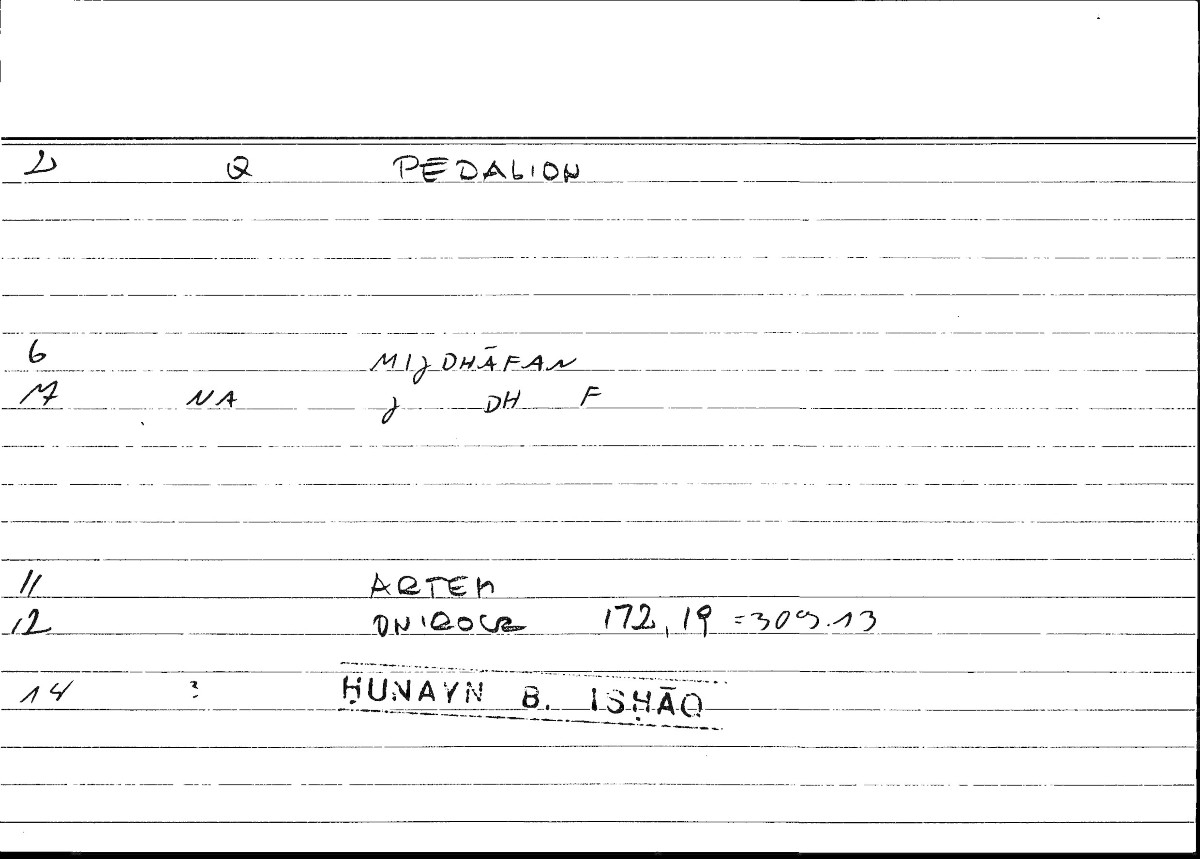 2 Q PEDALION
6 MIJDHĀFAN
7 NA J DH F
11 ARTEM
12 ONIROCR 172, 19 = 309.13
14 ? ḤUNAYN B. ISḤĀQ